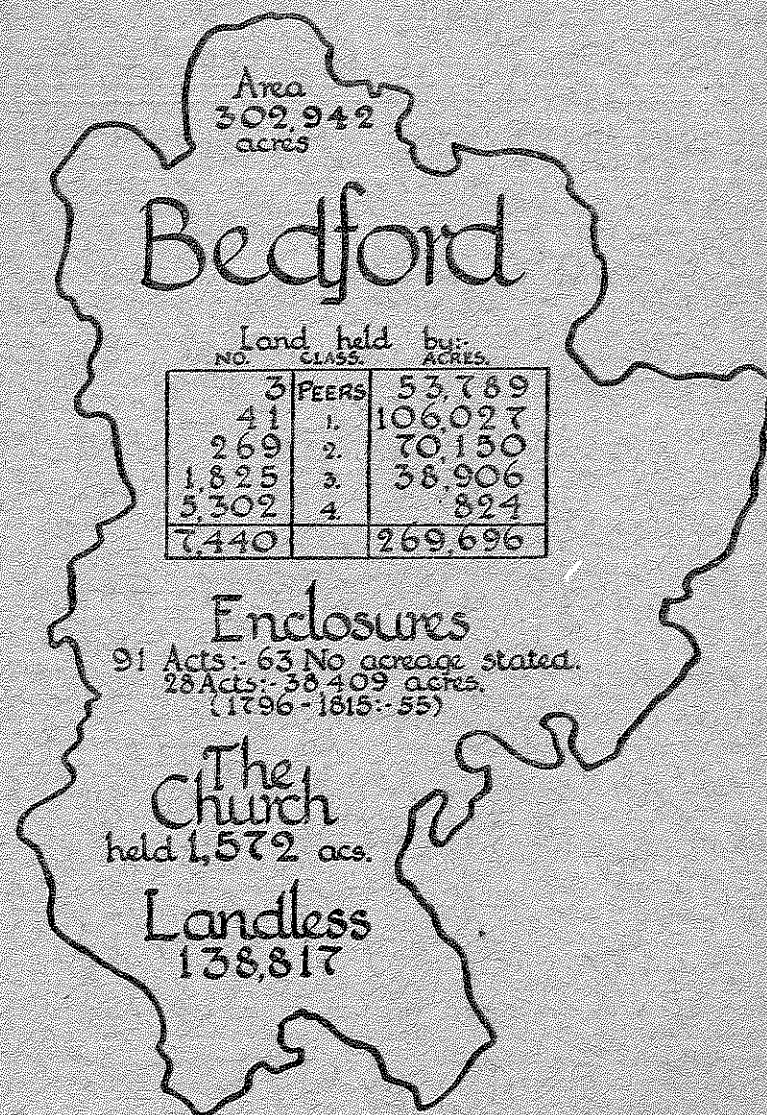 Area
302,942
acres
Bedford
Land held by:-
NO. CLASS. ACRES.
3 PEERS 53,789
41 1. 106,027
269 2. 70,150
1,825 3. 38,906
5,302 4. 824
7,440 269,696
Enclosures
91 Acts:- 63 No acreage stated.
28 Acts:- 38,409 acres.
(1796-1815:-55)
The
Church
held 1,572 acs.
Landless
138,817